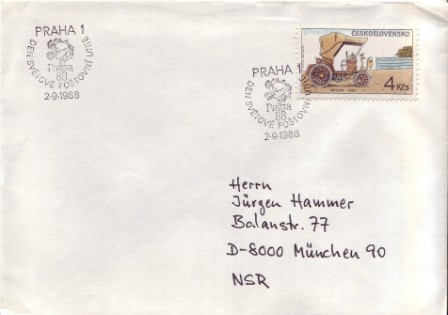 PRAHA 1
DEN SVĚTOVÉ POŠTOVNÍ UNIE
Praha
88
2-9-1988
PRAHA 1
DEN SVĚTOVÉ POŠTOVNÍ
Praha
88
2-9-1988
ČESKOSLOVENSKO
4 Kčs
Herrn
Jürgen Hammer
Balanstr. 77
D-8000 München 90
NSR